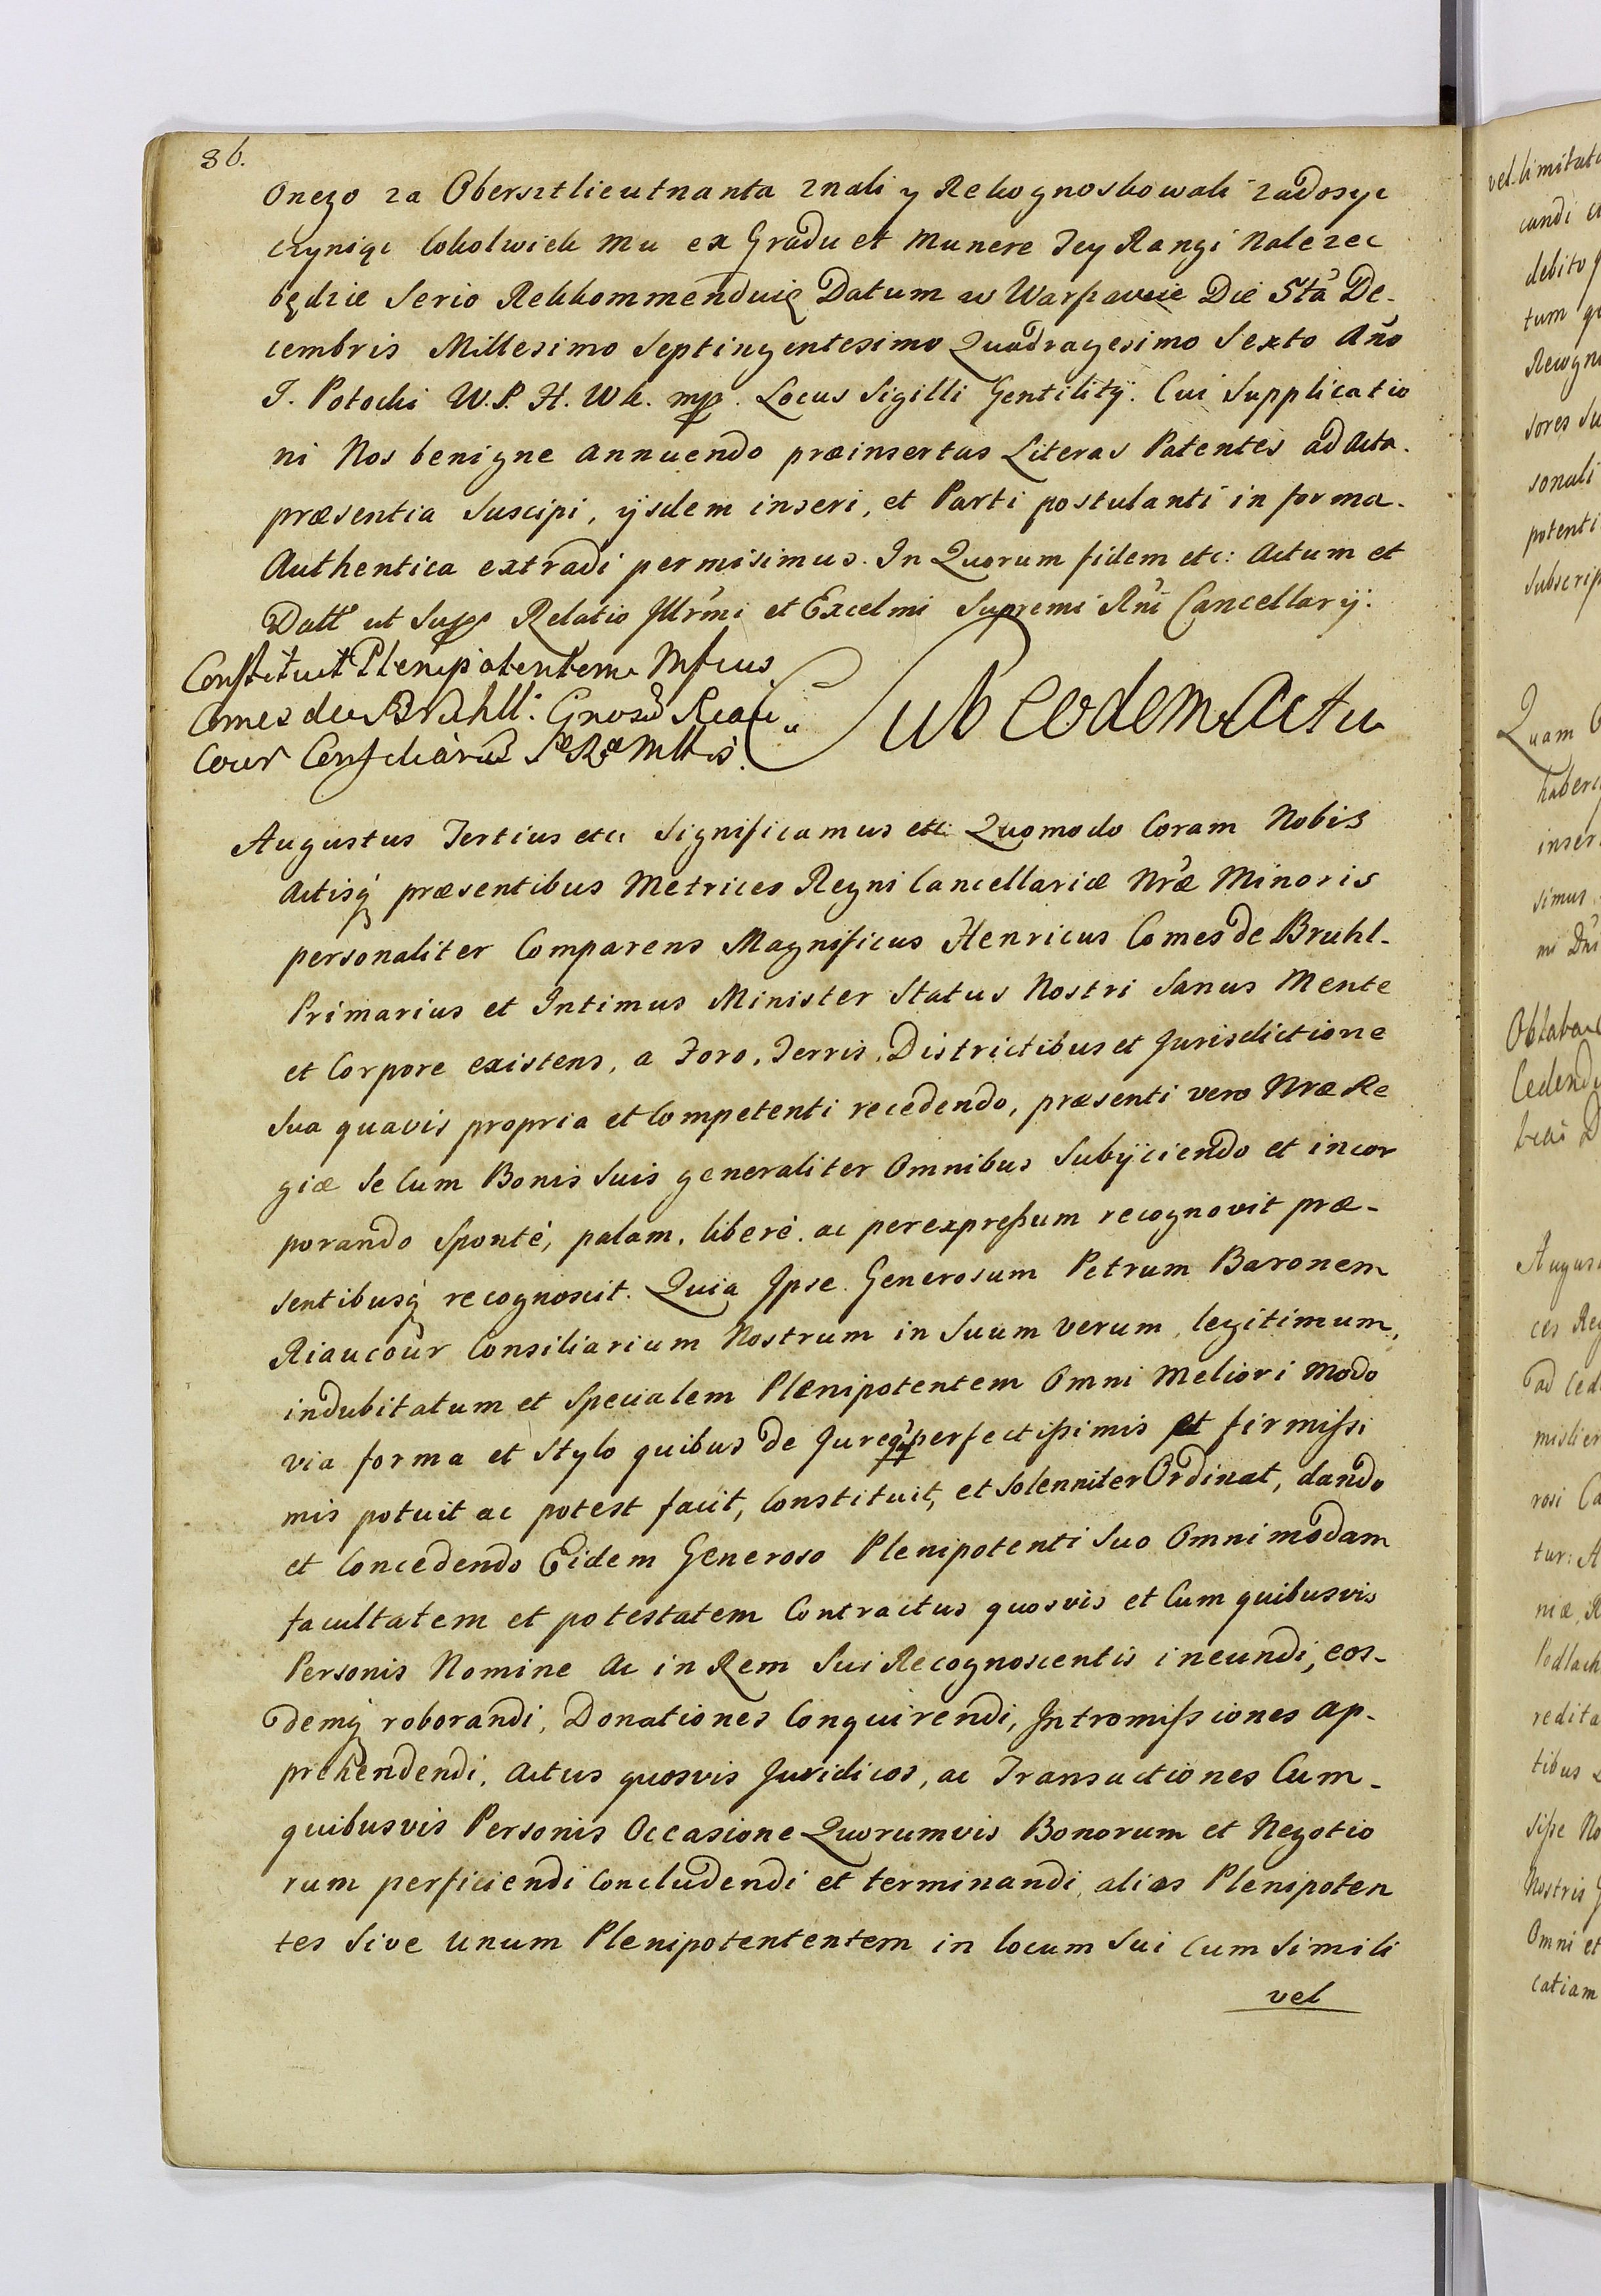 36.
Onego za Obersztlieutnanta znali y Rekognoskowali zadosyc
czyniąc Cokolwiek mu ex Gradu et Munere Tey Rangi Nalezec
będzie Serio Rekkommenduię Datum w Warszawie Die 5ta De-
cembris Millesimo Septingentesimo Quadragesimo Sexto Año
J. Potocki W. P. H. W k. mp. Locus Sigilli Gentilitÿ. Cui Supplicatio
ni Nos benigne annuendo præinsertas Literas Patentes ad Acta.
præsentia Suscipi, ÿsdem inseri, et Parti postulanti in forma.
Authentica extradi permisimus. In Quorum fidem etc: Actum et
Datt ut Supp Relatio Illr̃mi et Excelmi Supremi Rñi Cancellarÿ.
Constituit Plenipotentem Mfcus
Comes de Brühll. Gnosũ Reau
Cour Consiliariũ Sæ Ræ Mttis.
Sub eodem Actu
Augustus Tertius etc: Significamus etc: Quomodo Coram Nobis
Actisq́ præsentibus Metrices Regni Cancellariæ Nr̃æ Minoris
personaliter Comparens Magnificus Henricus Comes de Bruhl-
Primarius et Intimus Minister Status Nostri Sanus Mente
et Corpore existens, a Foro, Terris, Districtibus et Jurisdictione
Sua quavis propria et Competenti recedendo, præsenti vero Nræ Re
giæ Se Cum Bonis Suis generaliter Omnibus Subÿciendo et incor
porando Sponté, palam, liberè ac per expreßum recognovit præ-
sentibusq́ recognoscit. Quia Ipse Generosum Petrum Baronem
Riaucour Consiliarium Nostrum in Suum verum, legitimum,
indubitatum et Specialem Plenipotentem Omni Meliori Modo
via forma et Stylo quibus de Jureq́ perfectißimis et firmißi
mis potuit ac potest facit, Constituit, et Solenniter Ordinat, dando
et Concedendo Eidem Generoso Plenipotenti Suo Omnimodam
facultatem et potestatem Contractus quosvis et Cum quibusvis
Personis Nomine Ac in Rem Sui Recognoscentis ineundi, eos-
demq́ roborandi, Donationes Conquirendi, Intromißiones ap-
prehendendi, Actus quosvis Juridicos, ac Transactiones Cum-
quibusvis Personis Occasione Quorumvis Bonorum et Negotio
rum perficiendi Concludendi et terminandi, alios Plenipoten
tes Sive Unum Plenipotententem in locum Sui Cum Simili
vel